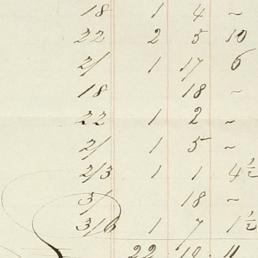 18 1 4 ~
22 2 5 10
2/ 1 17 6
18 18 ~
22 1 2 ~
2/ 1 5 ~
2/3 1 1 4½
3/ 18 ~
3/6 1 7 1½
22